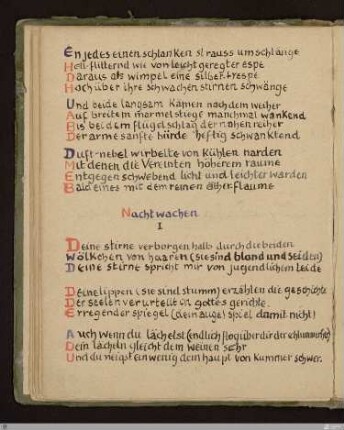 En jedes einen schlanken strauss umschlänge
Hell-flitternd wie von leicht geregter espe
Daraus als wimpel eine silbertrespe
Hoch über ihre schwachen stirnen schwänge
Und beide langsam kamen nach dem weiher
Auf breitem marmelstieg manchmal wankend
Bis bei dem flügelschlag der nahen reiher
Der arme sanfte bürde heftig schwanktend
Duft-nebel wirbelte von kühlen narden
Mit denen die Vereinten höherem raume
Entgegen schwebend licht und leichter warden
Bald eines mit dem reinen äther flaume
Nachtwachen
I
Deine stirne verborgen halb durch die beiden
Wölkchen von haaren (sie sind blond und seiden)
Deine stirne spricht mir von jugendlichem leide
Deine lippen (sie sind stumm) erzählen die geschichte
Der seelen verurteilt in gottes gerichte.
Erregender spiegel (dein auge) spiel damit nicht!
Auch wenn du lächelst (endlich flog über dir der schlummer)
Dein lächeln gleicht dem weinen sehr
Und du neigst ein wenig dein haupt von kummer schwer.